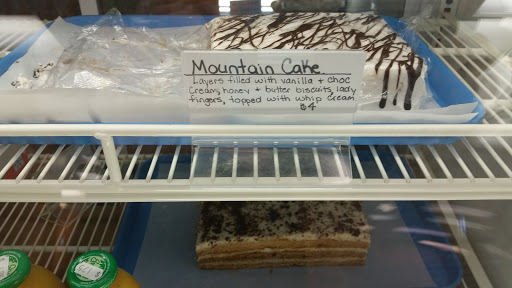 Mountain Cake
Layers filled with vanilla + choc
Cream, honey + butter biscuits, lady
fingers, topped with whip cream
$4